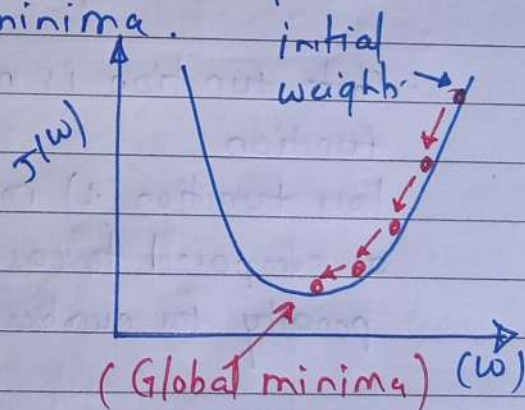 minima.
initial
weights.
J(W)
(Global minima) (W)